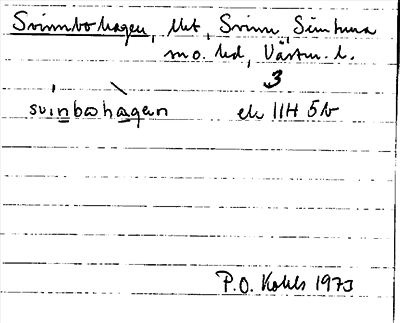 Svinnbohagen, Mt, Svinn, Simtuna
sn o. hd, Västm. l.
3
svinbohagen ek 11H 5b
P.O. Kohls 1973